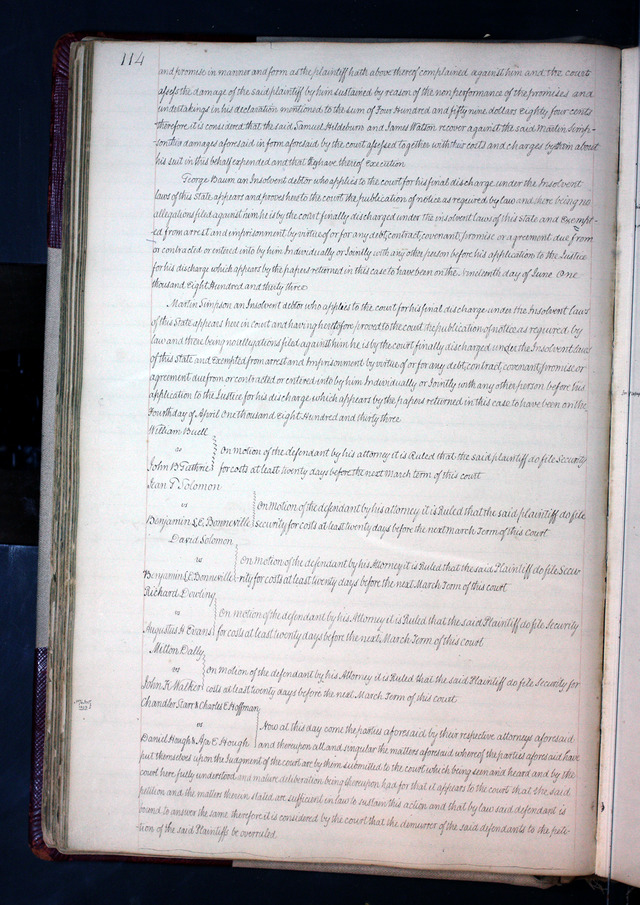 114
and promise in manner and form as the plaintiff hath above thereof complained against him and the court
assess the damage of the said plaintiff by him sustained by reason of the non performance of the promises and
undertakings in his declaration mentioned to the sum of Four Hundred and fifty nine dollars Eighty four cents
therefore it is considered that the said Samuel Heldsburn and James Watson recover against the said Martin Simp-
-son the damages aforesaid in form aforesaid by the court assessed together with their costs and charges by them about
his suit in this behalf expended and that they have thereof Execution
George Baum an Insolvent debtor who applies to the court for his final discharge under the Insolvent
laws of this State appears and proves here to the court the publication of notice as required by law and there being no
allegations filed against him he is by the court finally discharged under the insolvent laws of this state and Exempt-
-ed from arrest and imprisonment by virtue of or for any debt, contract, covenant, promise or agreement due from
or contracted or entered into by him Individually or Jointly with any other person before his application to the Justice
for his discharge which appears by the papers returned in this case to have been on the Nineteenth day of June One
thousand Eight Hundred and thirty three
Martin Simpson an Insolvent debtor who applies to the court for his final discharge under the Insolvent laws
of this State appears here in court and having heretofore proved to the court the publication of notice as required by
law and there being no allegations filed against him he is by the court finally discharged under the Insolvent laws
of this State and Exempted from arrest and Imprisonment by virtue of or for any debt, contract, covenant promise or
agreement due from or contracted or entered into by him Individually or Jointly with any other person before his
application to the Justice for his discharge which appears by the papers returned in this case to have been on the
Fourth day of April One thousand Eight Hundred and thirty three
William Buell
vs
On motion of the defendant by his attorney it is Ruled that the said plaintiff do file Security
John B Guthrie for costs at least twenty days before the next March term of this court
Jean P Solomon
vs
On Motion of the defendant by his attorney it is Ruled that the said plaintiff do file
Benjamin L E Bonneville security for costs at least twenty days before the next March Term of this court
David Solomon
vs
On motion of the defendant by his Attorney it is Ruled that the said Plaintiff do file Secu-
Benjamin L E Bonneville -rity for costs at least twenty days before the next March Term of this court
Richard Dewling
vs
On motion of the defendant by his Attorney it is Ruled that the said Plaintiff do file Security
Augustus H Evans for costs at least twenty days before the next March Term of this court
Milton Dally
vs
On motion of the defendant by his Attorney it is Ruled that the said Plaintiff do file Security for
John K Walker costs at least twenty days before the next March Term of this court
Chandler Starr & Charles E Hoffman
vs
Now at this day come the parties aforesaid by their respective attorneys aforesaid
Daniel Hough & Asa E Hough and thereupon all and singular the matters aforesaid whereof the parties aforesaid have
put themselves upon the Judgment of the court are by them submitted to the court which being seen and heard and by the
court here fully understood and mature deliberation being thereupon had for that it appears to the court that the said
petition and the matters therein stated are sufficient in law to sustain this action and that by law said defendant is
bound to answer the same therefore it is considered by the court that the demurrer of the said defendants to the peti-
tion of the said Plaintiffs be overruled.